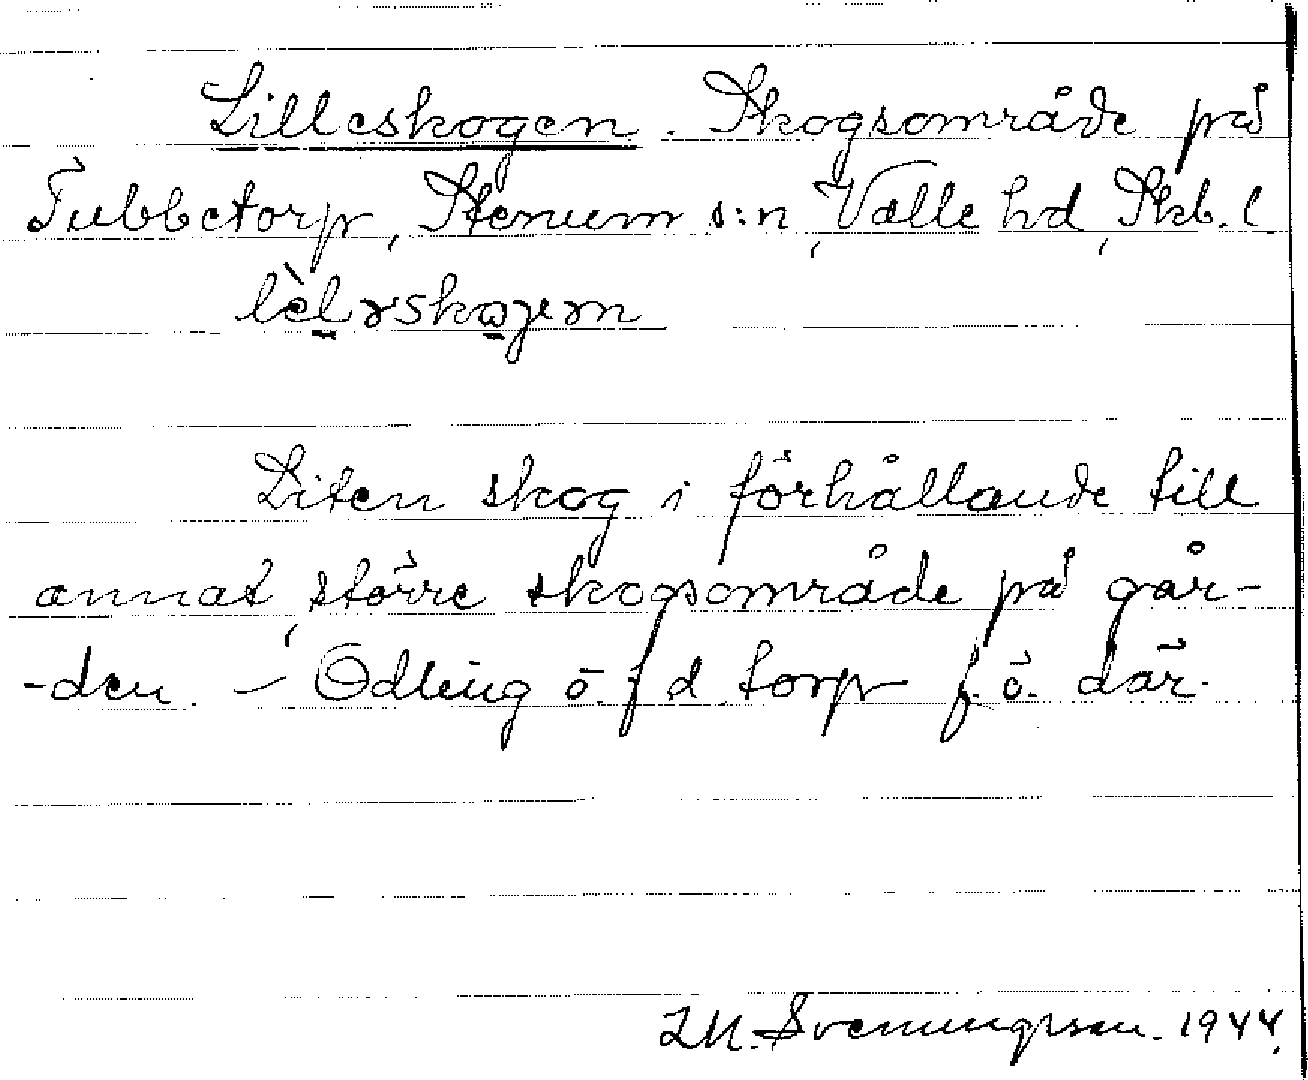 Lilleskogen. Skogsområde på
Tubbetorp, Stenum s:n, Valle hd, Skb. l
Liten skog i förhållande till
annat, större skogsområde på går-
-den. – Odling o. f d torp f. ö. där.
Svenungsson. 1944.